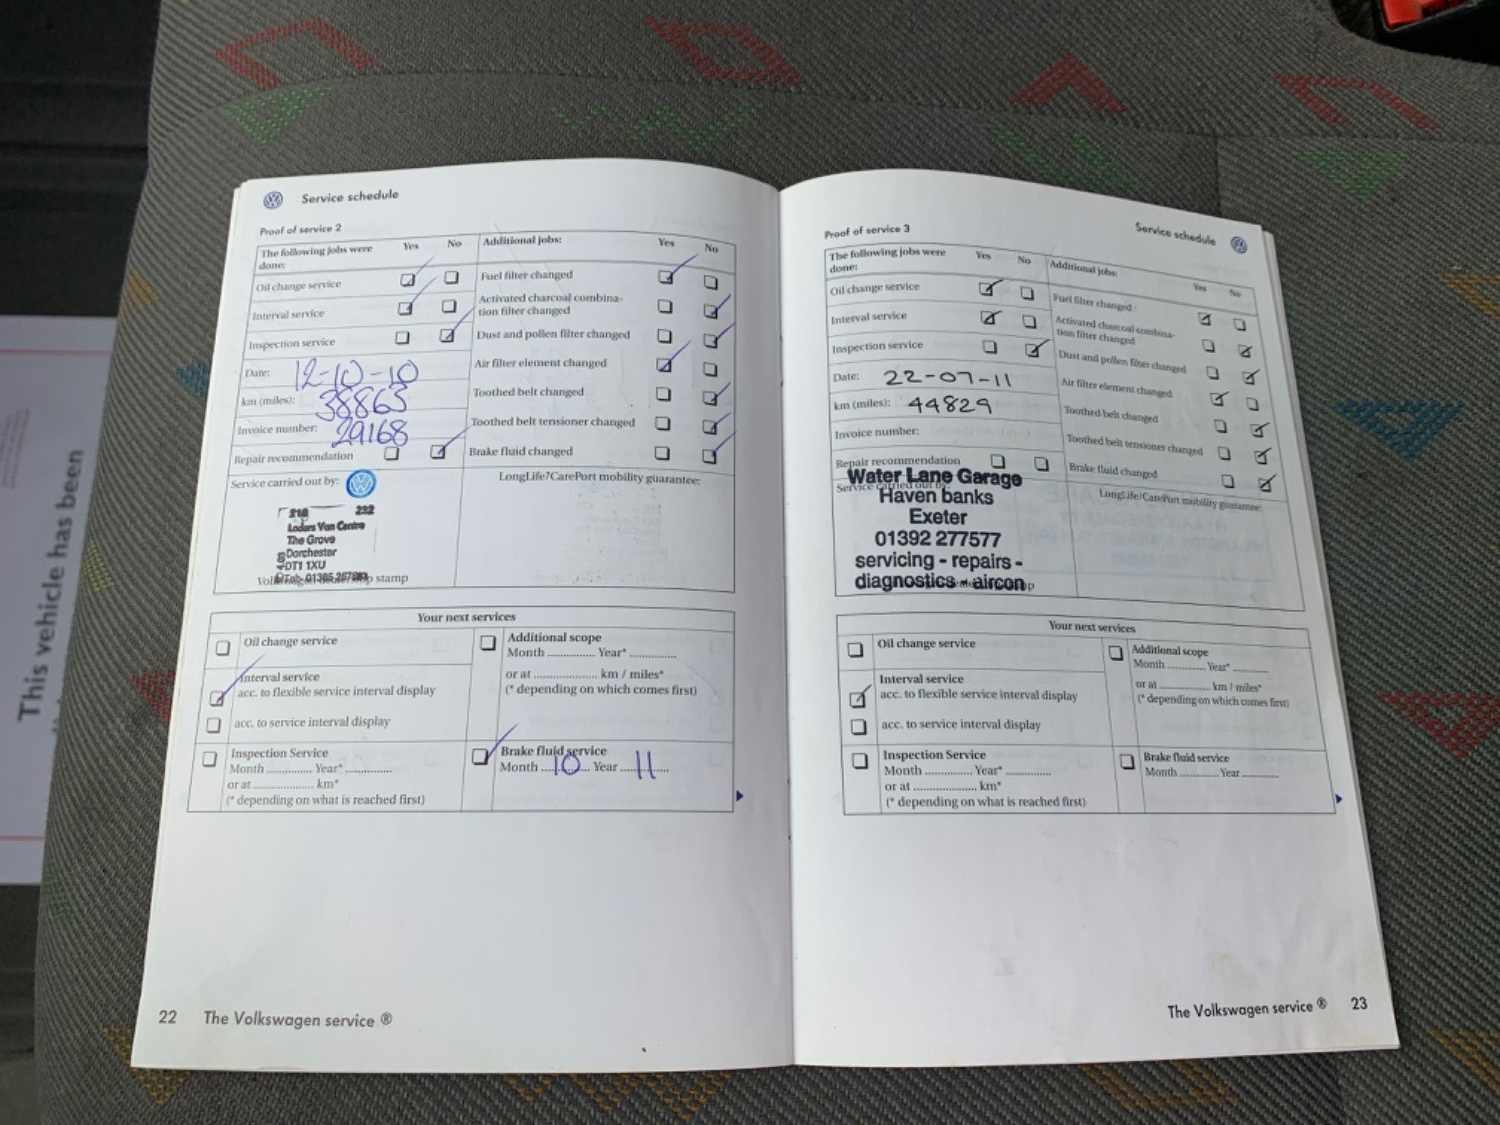 This vehicle has been
Service schedule
Proof of service 2
The following jobs were done:
Yes
No
Additional jobs:
Yes
No
Oil change service
Interval service
Inspection service
Date: 12-10-10
km (miles): 38865
Invoice number: 29168
Repair recommendation
Fuel filter changed
Activated charcoal combina-
tion filter changed
Dust and pollen filter changed
Air filter element changed
Toothed belt changed
Toothed belt tensioner changed
Brake fluid changed
Service carried out by:
LongLife/CarePort mobility guarantee:
218 232
Loders Van Centre
The Grove
Dorchester
DT1 1XU
stamp
Your next services
Oil change service
Interval service
acc. to flexible service interval display
acc. to service interval display
Inspection Service
Month ............. Year* .............
or at ..................... km*
(* depending on what is reached first)
Additional scope
Month ............. Year* .............
or at ..................... km / miles*
(* depending on which comes first)
Brake fluid service
Month ....10.... Year ....11....
22 The Volkswagen service ®
Service schedule
Proof of service 3
The following jobs were done:
Yes
No
Additional jobs:
Yes
No
Oil change service
Interval service
Inspection service
Date: 22-07-11
km (miles): 44829
Invoice number:
Repair recommendation
Fuel filter changed
Activated charcoal combina-
tion filter changed
Dust and pollen filter changed
Air filter element changed
Toothed belt changed
Toothed belt tensioner changed
Brake fluid changed
Service carried out by:
LongLife/CarePort mobility guarantee:
Water Lane Garage
Haven banks
Exeter
01392 277577
servicing - repairs -
diagnostics - aircon
Your next services
Oil change service
Interval service
acc. to flexible service interval display
acc. to service interval display
Inspection Service
Month ............. Year* .............
or at ..................... km*
(* depending on what is reached first)
Additional scope
Month ............. Year* .............
or at ..................... km / miles*
(* depending on which comes first)
Brake fluid service
Month ............. Year .............
The Volkswagen service ® 23